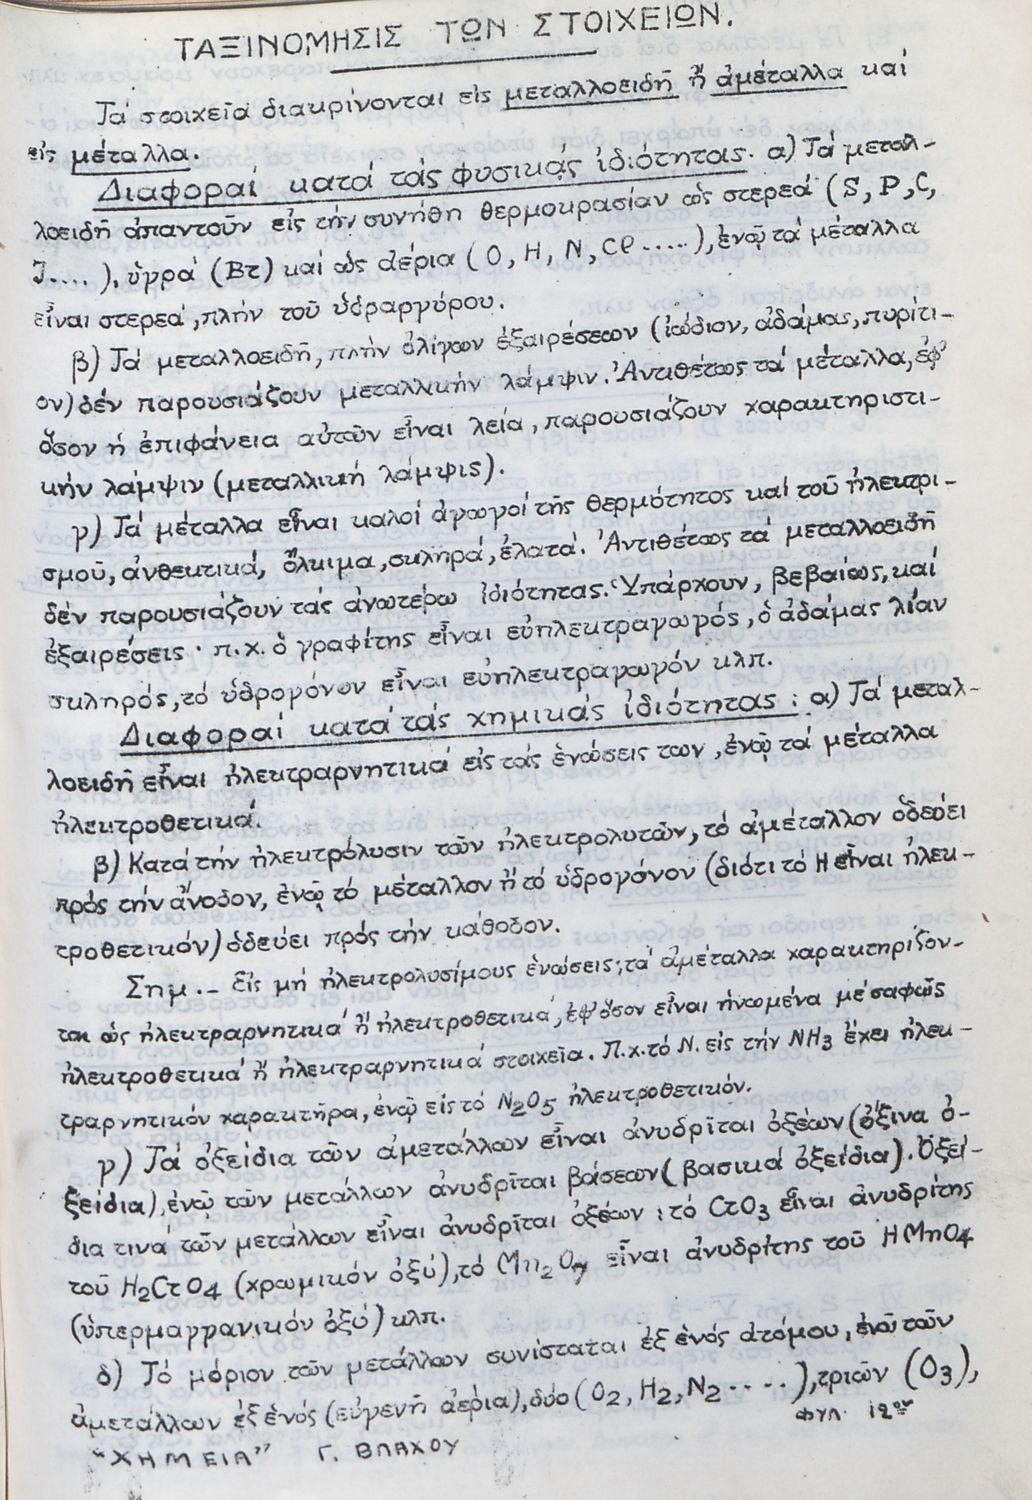 ΤΑΞΙΝΟΜΗΣΙΣ ΤΩΝ ΣΤΟΙΧΕΙΩΝ.
Τά στοιχεῖα διακρίνονται εἰς μεταλλοειδῆ ἤ ἀμέταλλα καί
εἰς μέταλλα.
Διαφοραί κατά τάς φυσικάς ἰδιότητας. α) Τά μεταλ-
λοειδῆ ἀπαντοῦν εἰς τήν συνήθη θερμοκρασίαν ὡς στερεά (S, P, C,
J....), ὑγρά (Br) καί ὡς ἀέρια (O, H, N, Cl .....), ἐνῷ τά μέταλλα
εἶναι στερεά, πλήν τοῦ ὑδραργύρου.
β) Τά μεταλλοειδῆ, πλήν ὀλίγων ἐξαιρέσεων (ἰώδιον, ἀδάμας, πυρίτι-
ον) δέν παρουσιάζουν μεταλλικήν λάμψιν. Ἀντιθέτως τά μέταλλα, ἐφ'
ὅσον ἡ ἐπιφάνεια αὐτῶν εἶναι λεία, παρουσιάζουν χαρακτηριστι-
κήν λάμψιν (μεταλλική λάμψις).
γ) Τά μέταλλα εἶναι καλοί ἀγωγοί τῆς θερμότητος καί τοῦ ἠλεκτρι-
σμοῦ, ἀνθεκτικά, ὅλκιμα, σκληρά, ἐλατά. Ἀντιθέτως τά μεταλλοειδῆ
δέν παρουσιάζουν τάς ἀνωτέρω ἰδιότητας. Ὑπάρχουν, βεβαίως, καί
ἐξαιρέσεις· π.χ. ὁ γραφίτης εἶναι εὐηλεκτραγωγός, ὁ ἀδάμας λίαν
σκληρός, τό ὑδρογόνον εἶναι εὐηλεκτραγωγόν κλπ.
Διαφοραί κατά τάς χημικάς ἰδιότητας: α) Τά μεταλ-
λοειδῆ εἶναι ἠλεκτραρνητικά εἰς τάς ἑνώσεις των, ἐνῷ τά μέταλλα
ἠλεκτροθετικά.
β) Κατά τήν ἠλεκτρόλυσιν τῶν ἠλεκτρολυτῶν, τό ἀμέταλλον ὁδεύει
πρός τήν ἄνοδον, ἐνῷ τό μέταλλον ἤ τό ὑδρογόνον (διότι τό H εἶναι ἠλεκ-
τροθετικόν) ὁδεύει πρός τήν κάθοδον.
Σημ.- Εἰς μή ἠλεκτρολυσίμους ἑνώσεις, τά ἀμέταλλα χαρακτηρίζον-
ται ὡς ἠλεκτραρνητικά ἤ ἠλεκτροθετικά, ἐφ' ὅσον εἶναι ἡνωμένα μέ σαφῶς
ἠλεκτροθετικά ἤ ἠλεκτραρνητικά στοιχεῖα. Π.χ. τό N. εἰς τήν NH3 ἔχει ἠλεκ-
τραρνητικόν χαρακτῆρα, ἐνῷ εἰς τό N2O5 ἠλεκτροθετικόν.
γ) Τά ὀξείδια τῶν ἀμετάλλων εἶναι ἀνυδρῖται ὀξέων (ὄξινα ὀ-
ξείδια), ἐνῷ τῶν μετάλλων ἀνυδρῖται βάσεων (βασικά ὀξείδια). Ὀξεί-
δια τινά τῶν μετάλλων εἶναι ἀνυδρῖται ὀξέων: τό CrO3 εἶναι ἀνυδρίτης
τοῦ H2CrO4 (χρωμικόν ὀξύ), τό Mn2O7 εἶναι ἀνυδρίτης τοῦ HMnO4
(ὑπερμαγγανικόν ὀξύ) κλπ.
δ) Τό μόριον τῶν μετάλλων συνίσταται ἐξ ἑνός ἀτόμου, ἐνῷ τῶν
ἀμετάλλων ἐξ ἑνός (εὐγενῆ ἀέρια), δύο (O2, H2, N2 ....), τριῶν (O3),
"ΧΗΜΕΙΑ" Γ. ΒΛΑΧΟΥ ΦΥΛ. 12ον